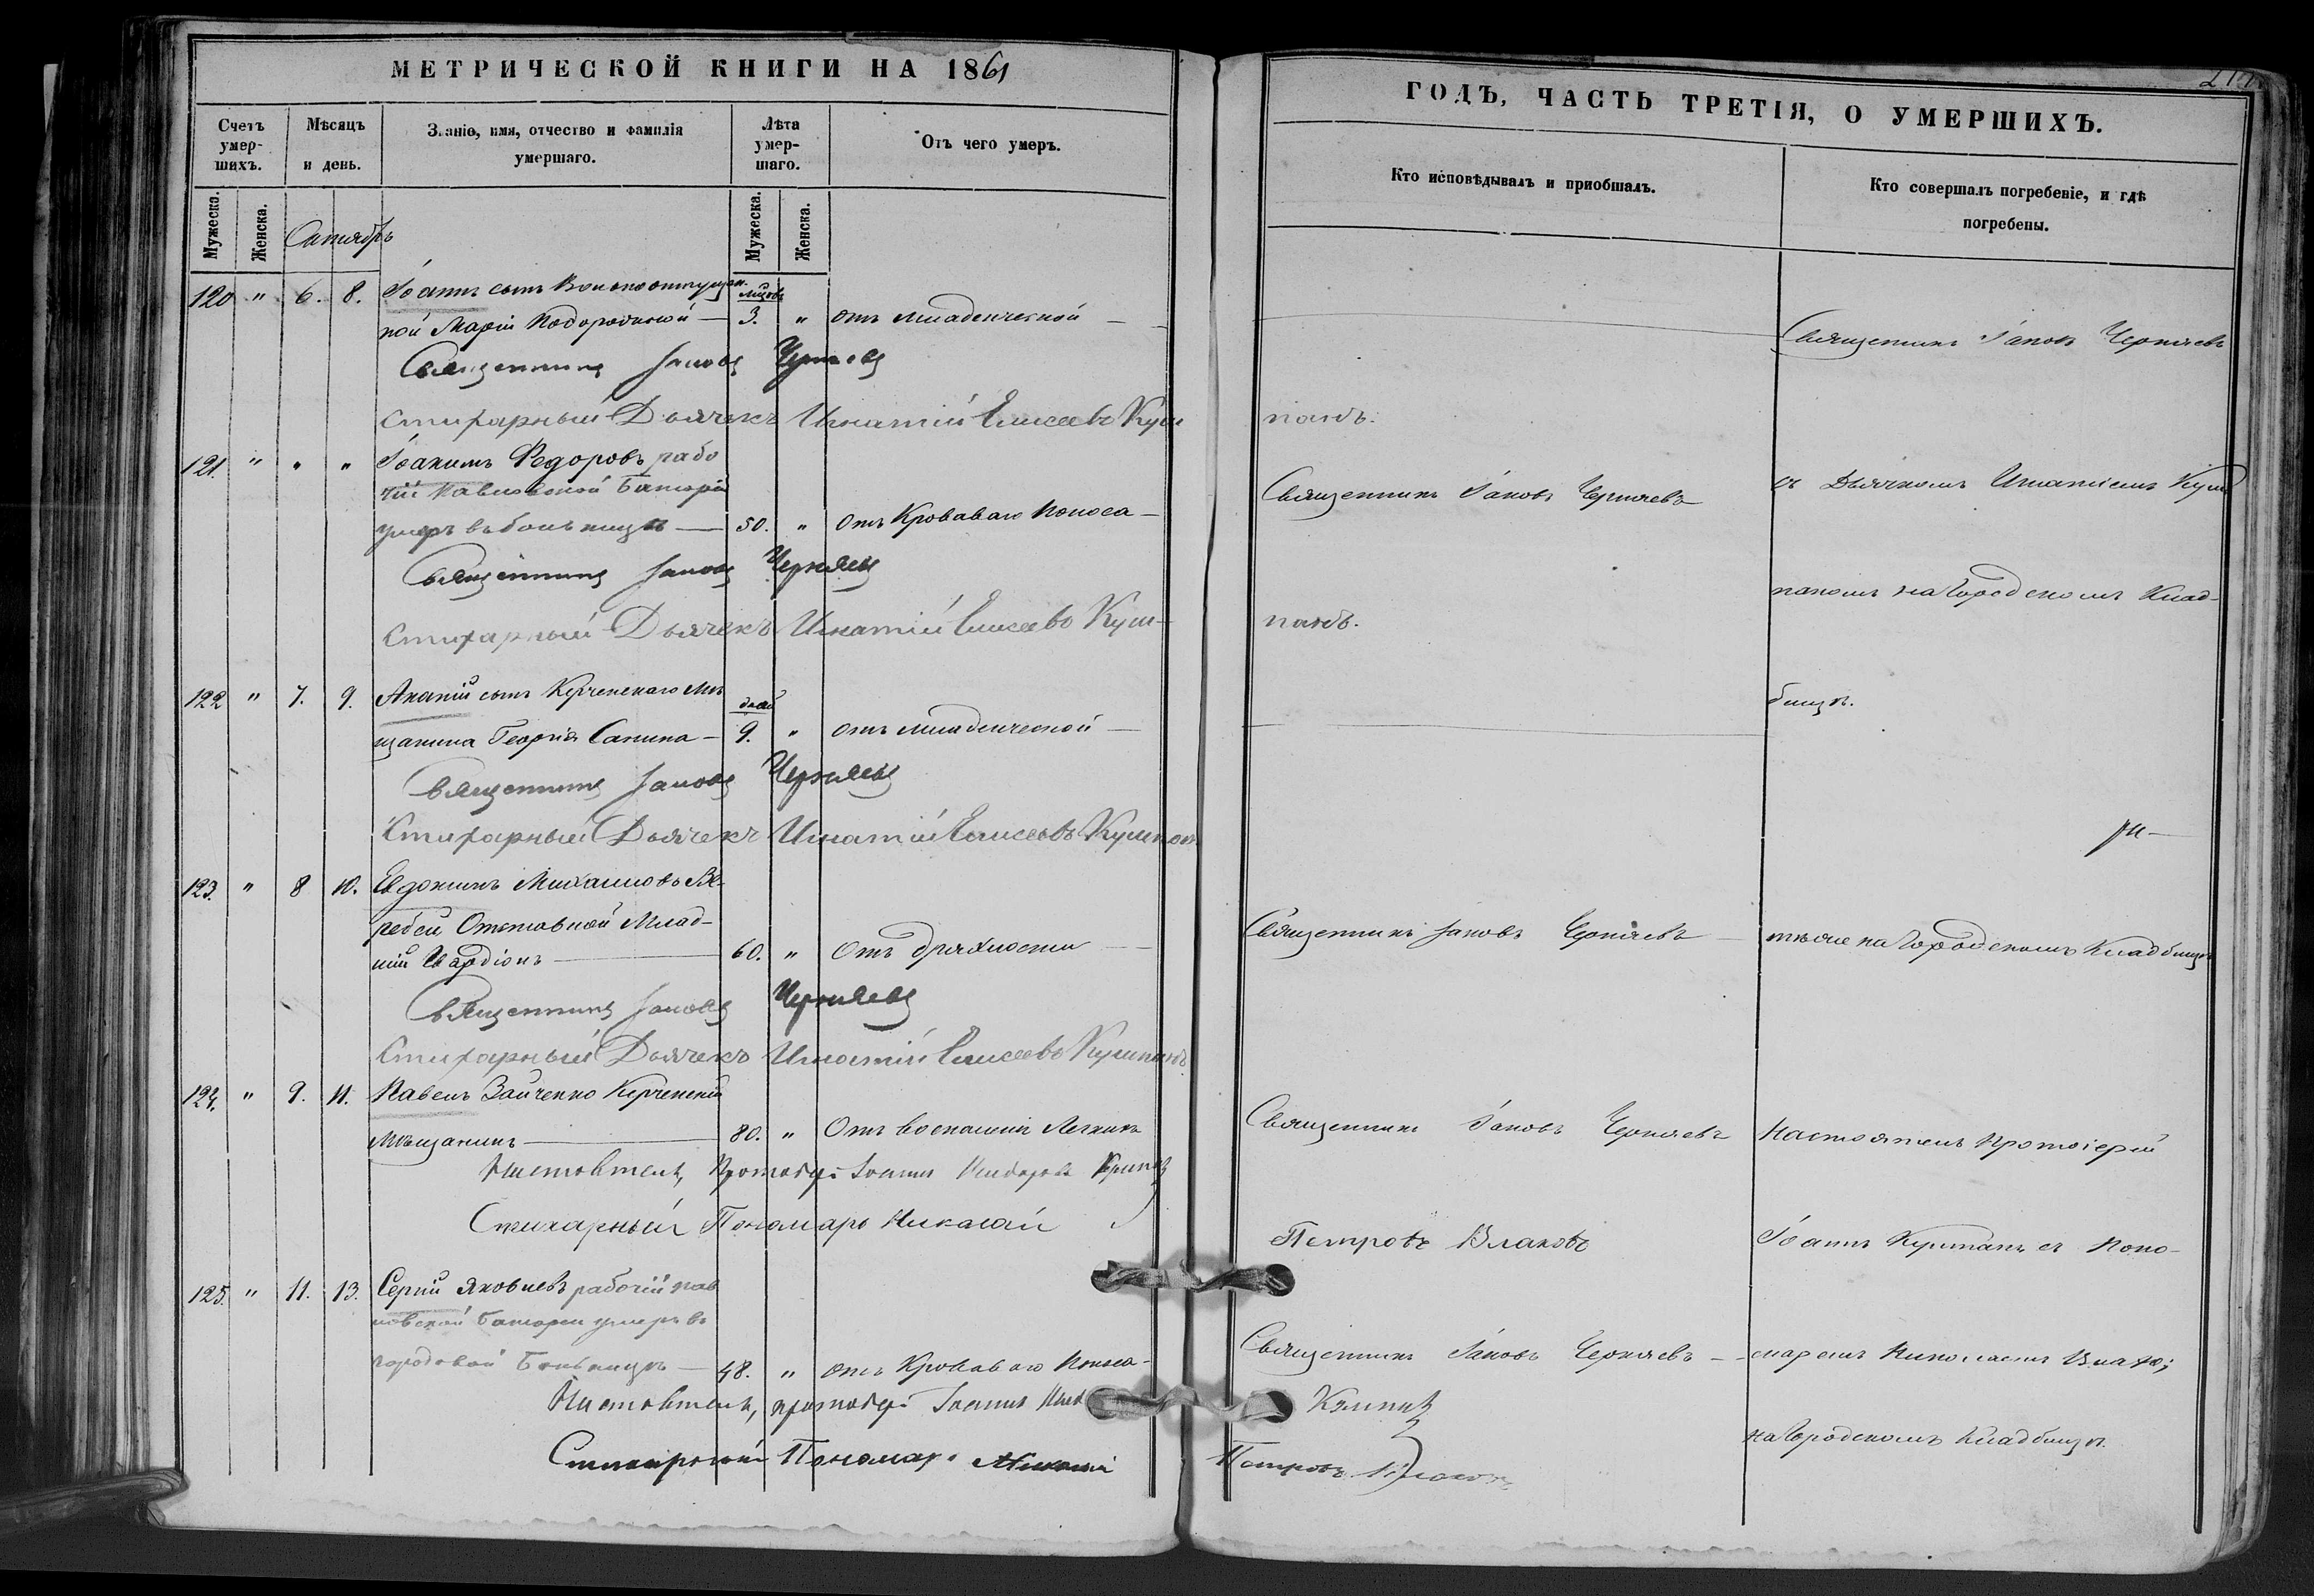 МЕТРИЧЕСКОЙ КНИГИ НА 1861
Счетъ умерших. Мѣсяцъ и день. Званіе, имя, отчество и фамилія умершаго. Лѣта умершаго. Отъ чего умеръ.
Мужеска. Женска. Мужеска. Женска.
120 " 6. 8. Іоаннъ сынъ Вольноотпущен.
ной Маріи 3. " отъ младенческой
Священникъ Іаковъ Черняевъ
Стихарный Дьячекъ Игнатій Елисеевъ Куш
121. " " " Іоакимъ Федоровъ рабо
чій Павловской Батареи
умеръ въ больницѣ 50. " отъ Кроваваго Поноса
Священникъ Іаковъ Черняевъ
Стихарный Дьячекъ Игнатій Елисеевъ Куш-
122 " 7. 9. Ананій сынъ Керченскаго Мѣ
щанина Георгія Санина дней 9. " отъ младенческой
Священникъ Іаковъ Черняевъ
Стихарный Дьячекъ Игнатій Елисеевъ Кушпакъ
123. " 8 10. Евдокимъ Михайловъ
Отставной Млад-
60. " Отъ дряхлости
Священникъ Іаковъ Черняевъ
Стихарный Дьячекъ Игнатій Елисеевъ
124. " 9. 11. Павелъ Зайченко Керченскій
Мѣщанинъ 80. " Отъ воспаленія Легкихъ
Настоятель, Протоіерей Іоаннъ
Стихарный Пономарь Николай
125. " 11. 13. Сергій Яковлевъ рабочій Пав
ловской Батареи умеръ въ
городовой Больницѣ 48. " отъ Кроваваго Поноса
Настоятель, протоіерей Іоаннъ
Стихарный Пономарь Николай
ГОДЪ, ЧАСТЬ ТРЕТІЯ, О УМЕРШИХЪ.
Кто исповѣдывалъ и приобшалъ. Кто совершалъ погребеніе, и гдѣ погребены.
Священникъ Іаковъ Черняевъ
пакъ.
Священникъ Іаковъ Черняевъ съ Дьячкомъ Игнатіемъ Куш
пакомъ на Городскомъ Клад-
пакъ.
бищѣ.
Священникъ Іаковъ Черняевъ на Городскомъ Кладбищѣ
Священникъ Іаковъ Черняевъ Настоятель Протоіерей
Петровъ Влаховъ Іоаннъ съ Поно-
Священникъ Іаковъ Черняевъ маремъ Николаемъ
на Городскомъ Кладбищѣ.
Петровъ